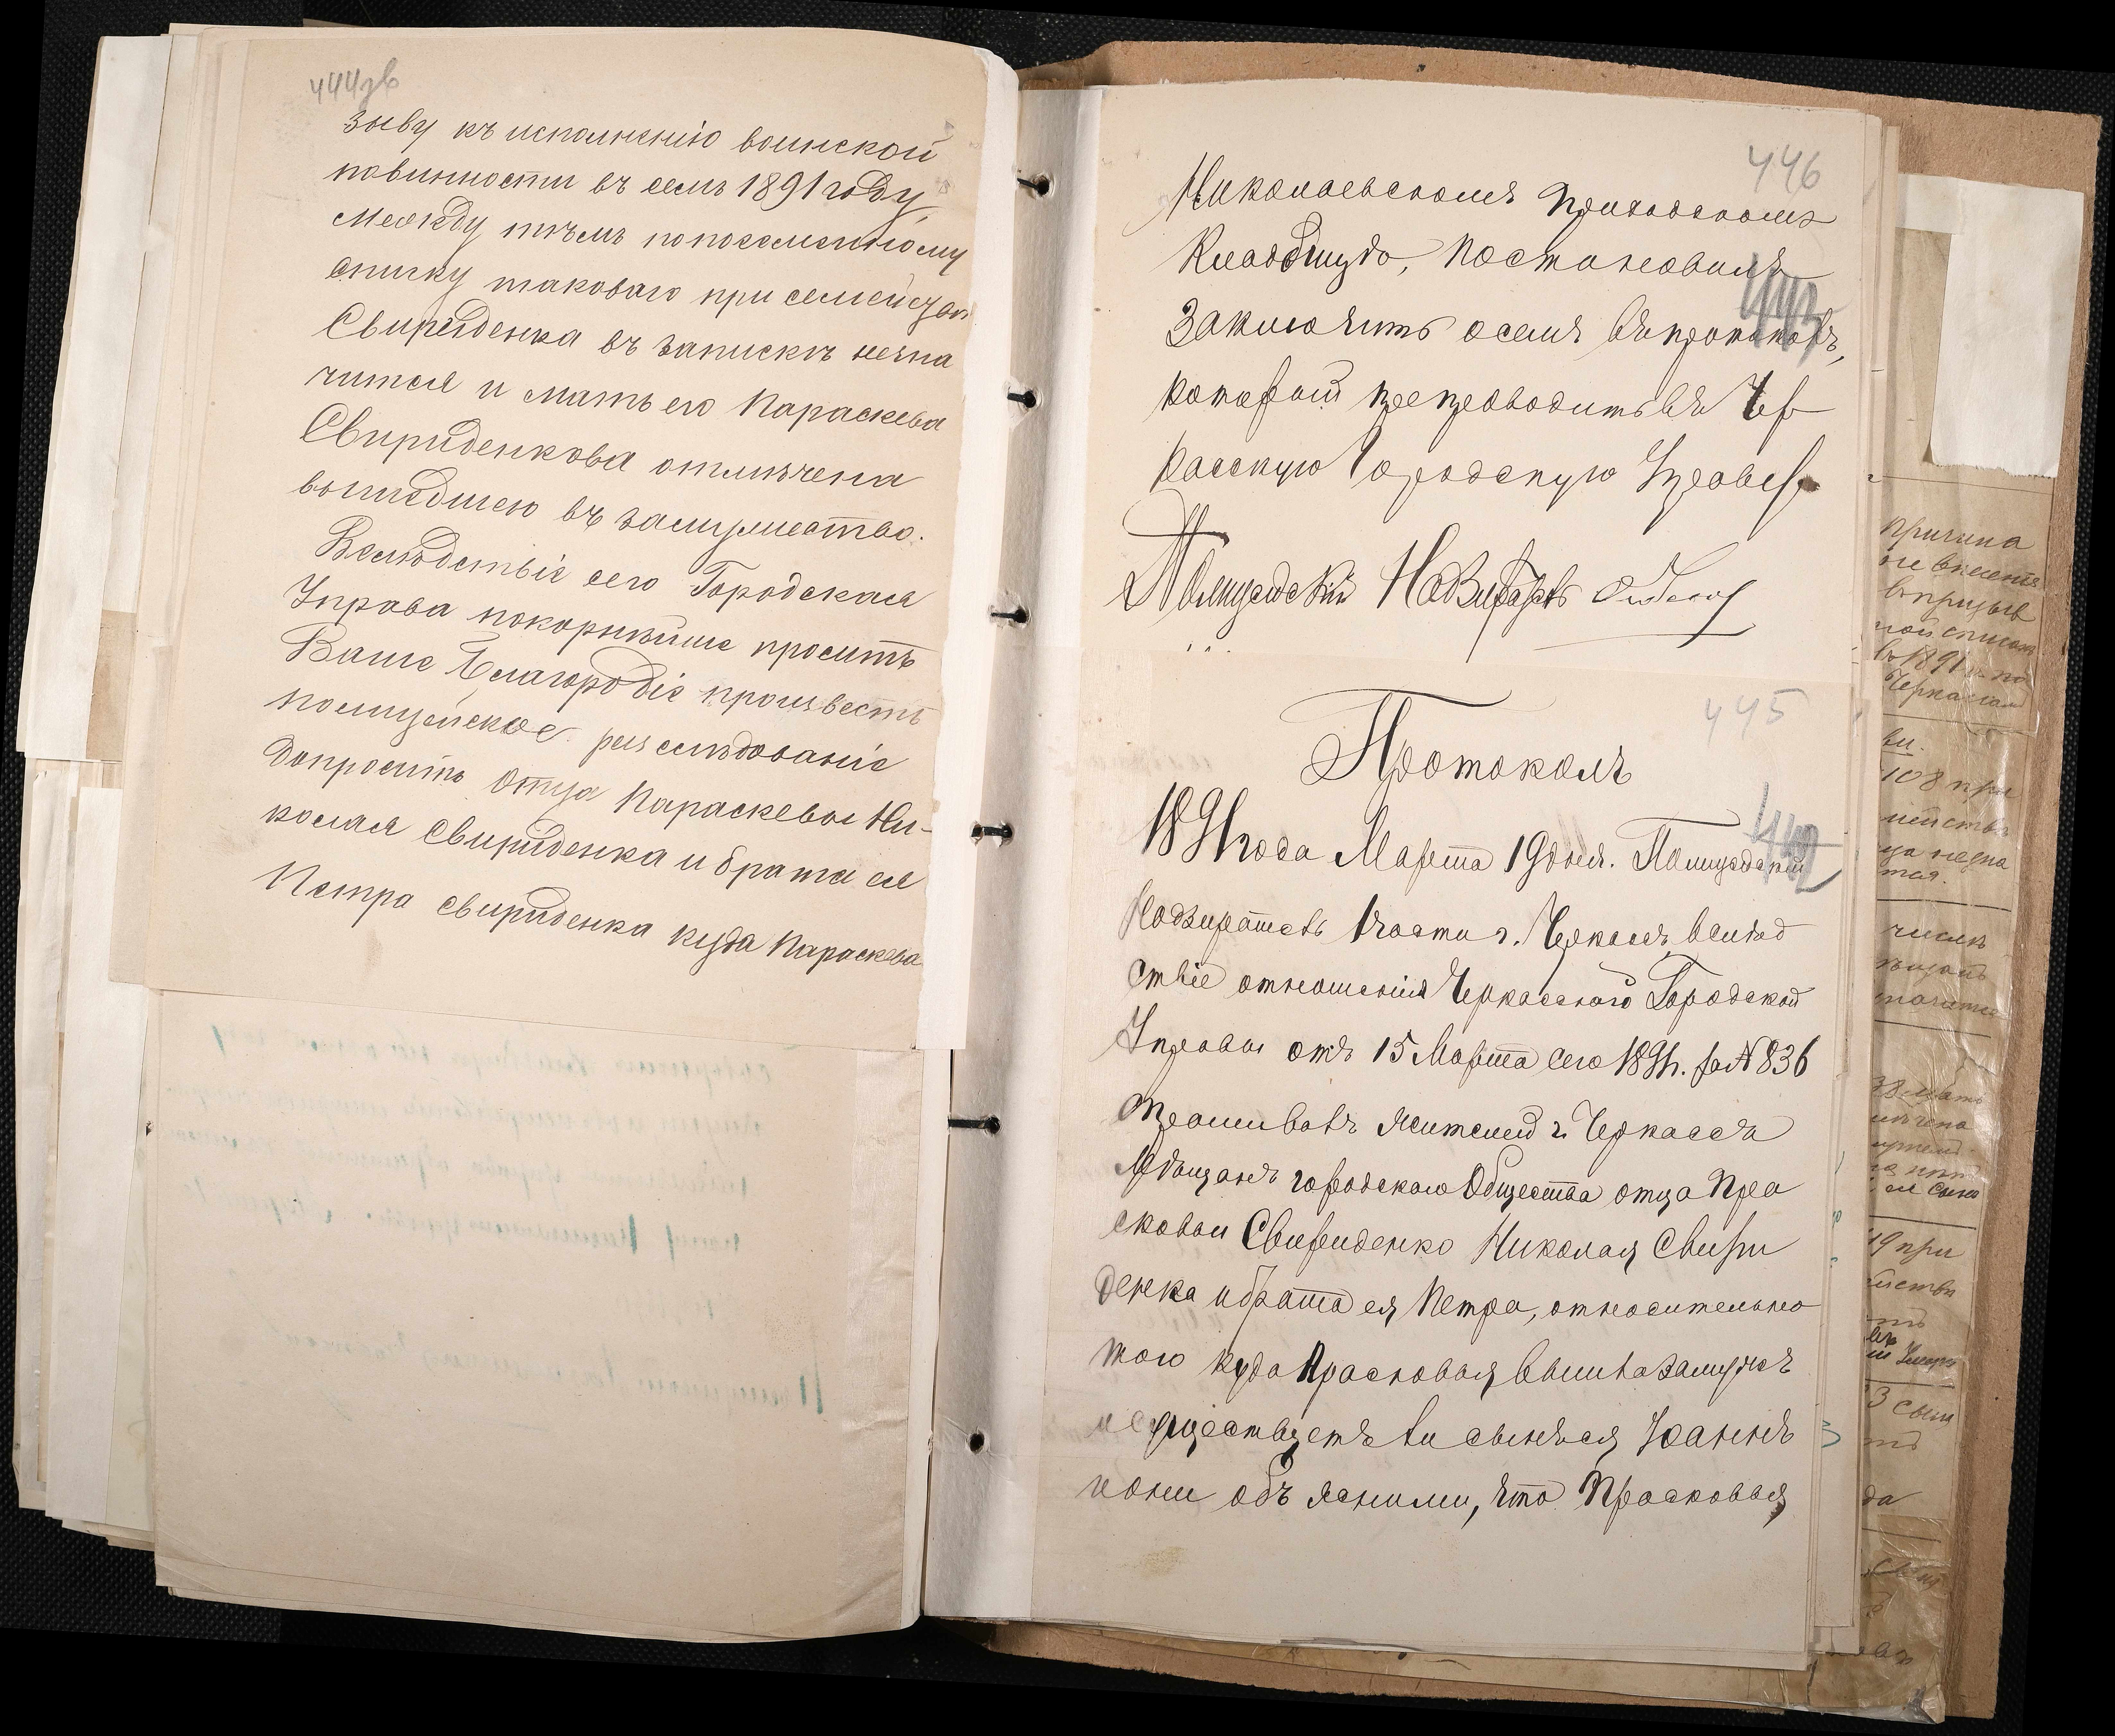 444зв
зыву къ исполненію воинской
повинности въ семъ 1891 году,
между тѣмъ по посемейному
списку таковаго при семействѣ
Свириденка въ запискѣ незна
чится и мать его Параскева
Свириденкова отмѣчена
вышедшею въ замужество.
Вслѣдствіе сего Городская
Управа покорнѣйше проситъ
Ваше Благородіе произвесть
полицейское разслѣдованіе
допросить отца Параскевы Ни-
колая Свириденка и брата ея
Петра Свириденка куда Параскева
446
Николаевскомъ Приходскомъ
Кладбищѣ, постановилъ
Заключить о семъ въ протоколъ,
который препроводить въ Чер
касскую Городскую Управу
Полицейскій Надзиратель
445
Протоколъ
1891 года Марта 19 дня. Полицейскій
Надзиратель 1 части г. Черкассъ вслѣд
ствіе отношенія Черкасского Городской
Управы отъ 15 Марта сего 1891 г. за № 836
спрашивалъ жителей г. Черкассъ
Мѣщанъ городского Общества отца Пра
сковьи Свириденко Николая Свири
денка и брата ея Петра, относительно
того куда Прасковья вышла замужъ
и существуетъ ли сынъ ея Іоаннъ
и они объяснили, что Прасковья
Причина
не внесенія
въ призыв
ной списокъ
въ 1891 г. по
Черкассам
108 при